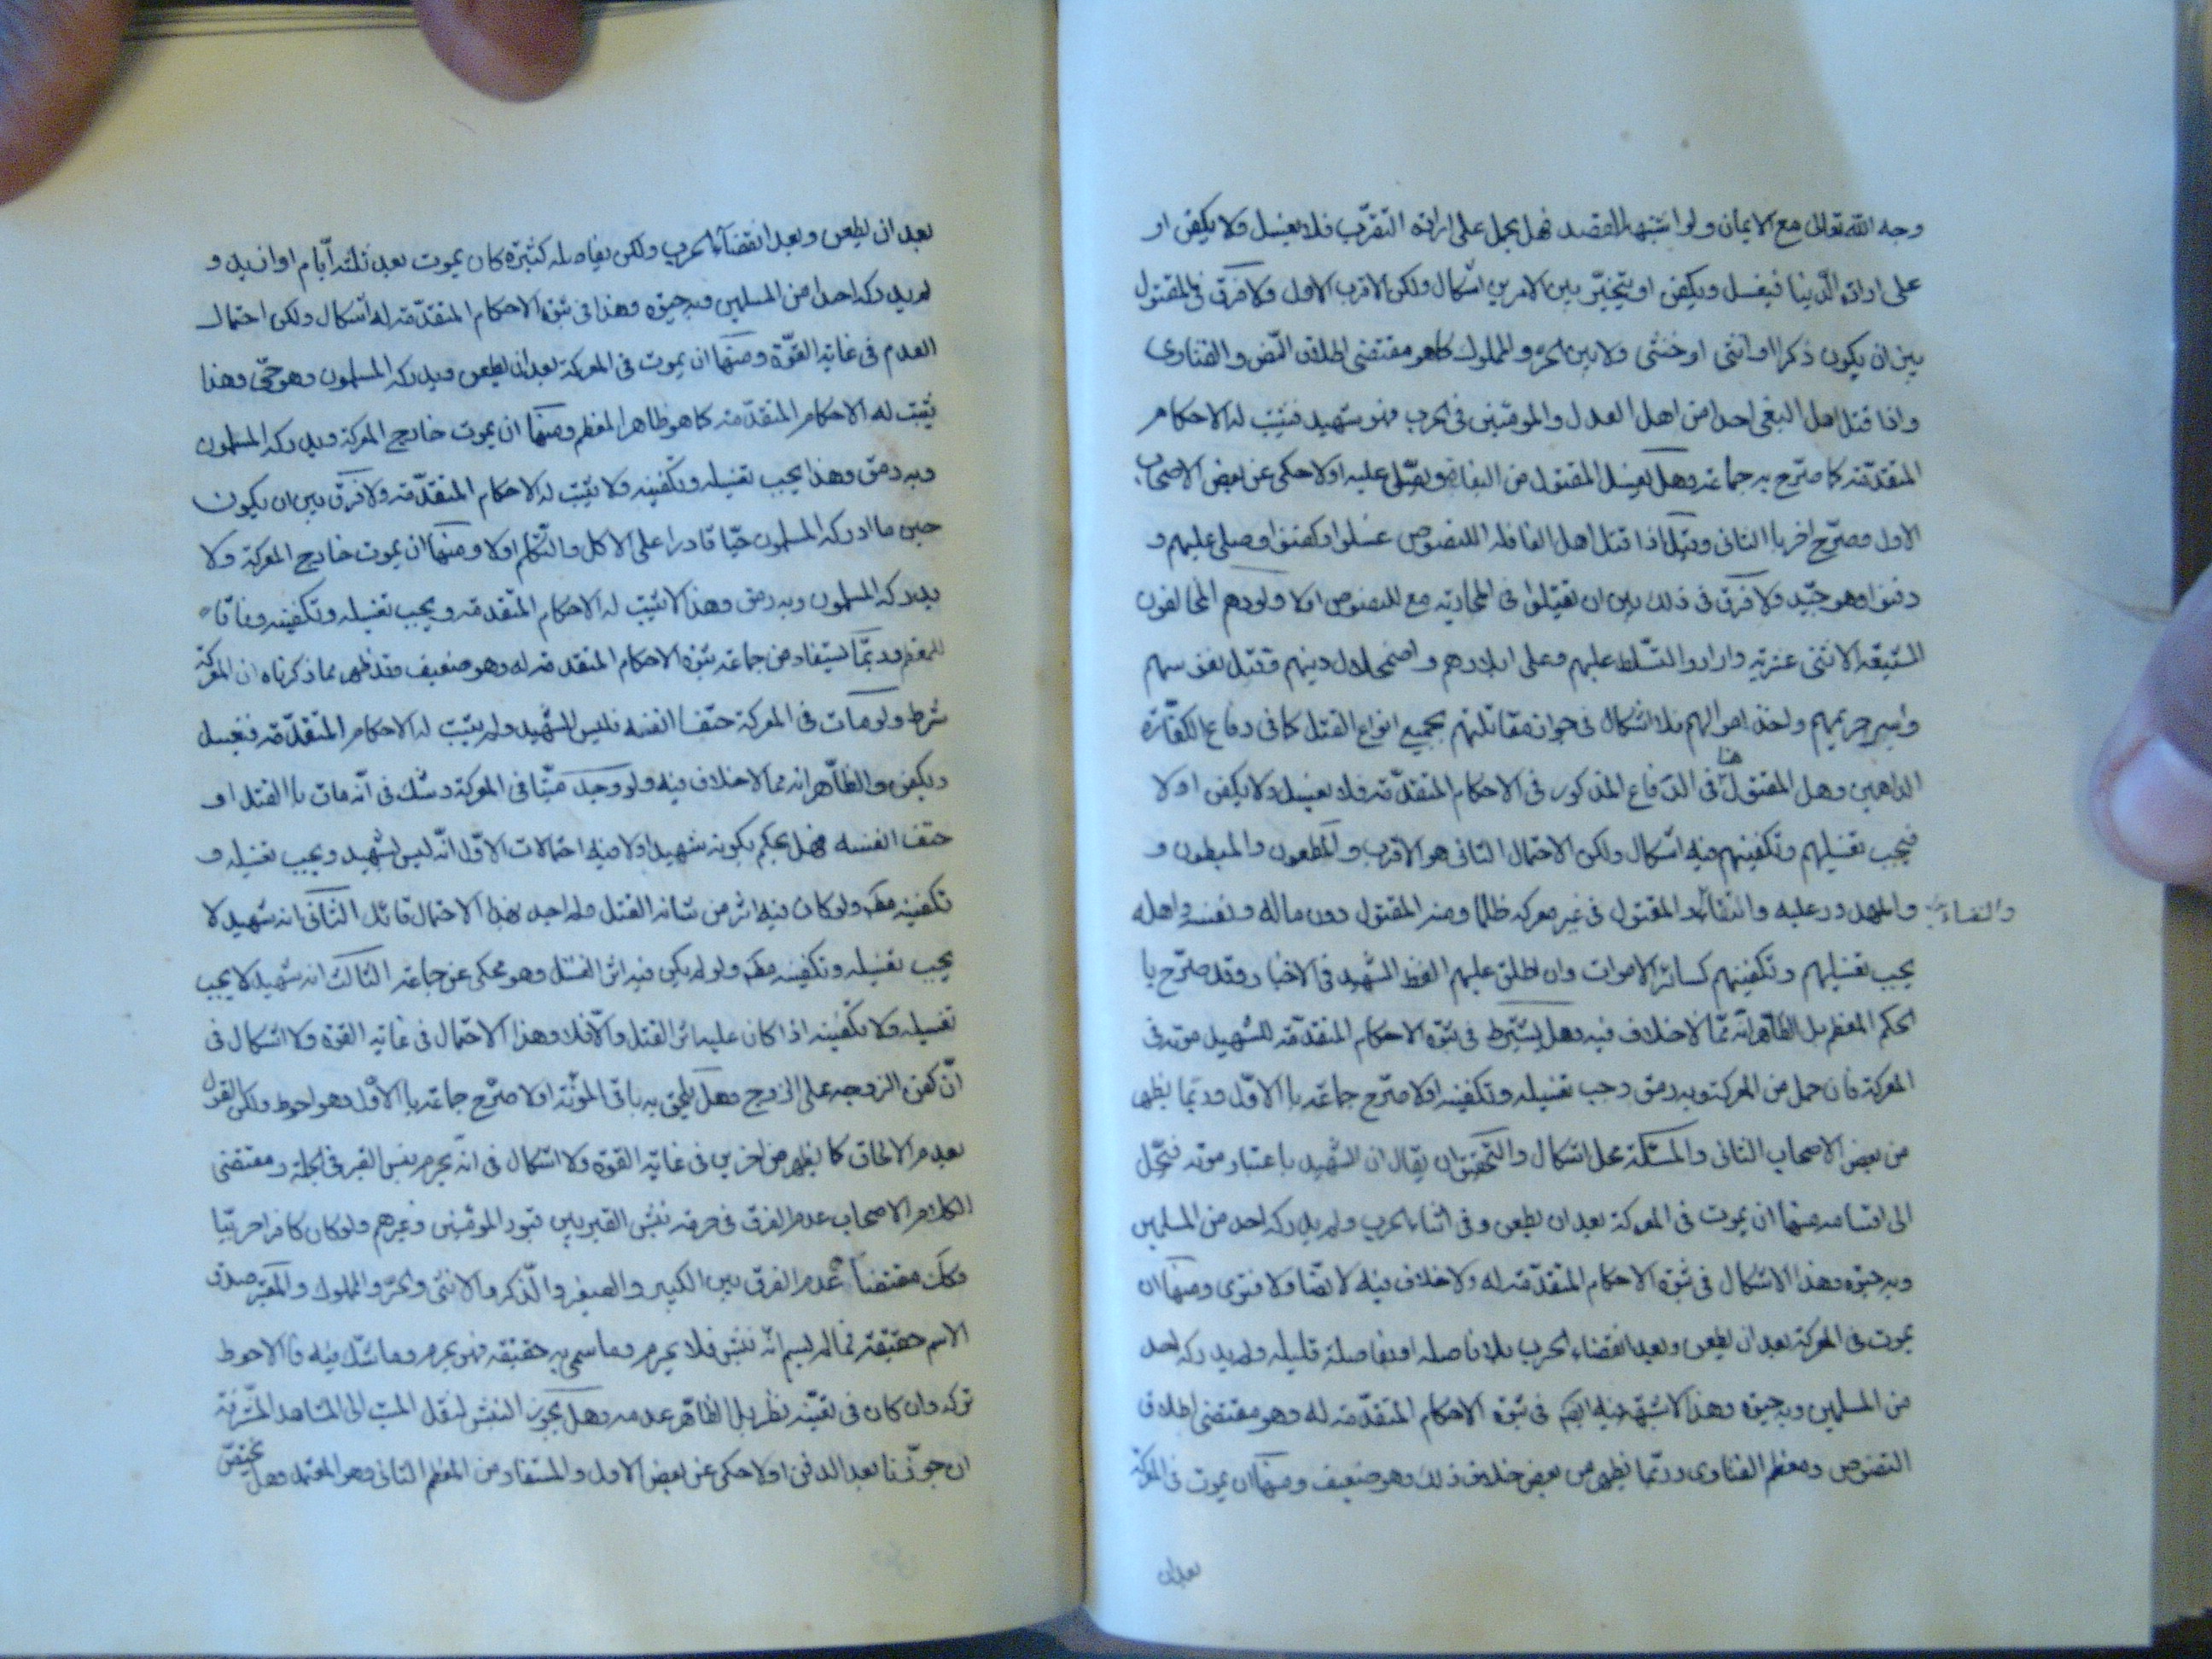 وجه الله تعالى مع الايمان ولو اشتبه القصد فهل يحمل على ارادة التقرب فلا يغسل ولا يكفن او
على ارادة الدنيا فيغسل ويكفن او يتخير بين الامرين اشكال ولكن الاقرب الاول ولا فرق فى المقتول
بين ان يكون ذكرا او انثى او خنثى ولا بين الحر والمملوك كما هو مقتضى اطلاق النص والفتاوى
واذا قتل اهل البغى احدا من اهل العدل والمومنين فى الحرب فهو شهيد فيثبت له الاحكام
المتقدمة كما صرح به جماعة وهل يغسل المقتول من البغاة ويصلى عليه اولا حكى عن بعض الاصحاب
الاول وصرح اخر با الثانى وقيل اذا قتل اهل القافلة اللصوص غسلوا وكفنوا وصلى عليهم و
دفنوا وهو جيد ولا فرق فى ذلك بين ان يقتلوا فى المحاربة مع اللصوص اولا ولو دهم المخالفون
الشيعة الاثنى عشرية وارادوا التسلط عليهم وعلى ابلادهم واضمحلال دينهم وقتل نفوسهم
واسر حريمهم واخذ اموالهم فلا اشكال فى جواز مقاتلتهم بجميع انواع القتل كما فى دفاع الكفارة
الداهمين وهل المقتول هنا فى الدفاع المذكور فى الاحكام المتقدمة فلا يغسل ولا يكفن اولا
فيجب تغسيلهم وتكفينهم فيه اشكال ولكن الاحتمال الثانى هو الاقرب والمطعون والمبطون و
والمهدور عليه والنفساء والمقتول فى غير معركة ظلما ومنه المقتول دون ماله ونفسه واهله
والنفساء
يجب تغسيلهم وتكفينهم كسائر الاموات وان اطلق عليهم لفظ الشهيد فى الاخبار وقد صرح با
الحكم المعظم بل الظاهر انه مما لا خلاف فيه وهل يشترط فى ثبوت الاحكام المتقدمة للشهيد موته فى
المعركة فان حمل من المعركة وبه رمق وجب تغسيله وتكفينه اولا صرح جماعة با الاول وربما يظهر
من بعض الاصحاب الثانى والمسئلة محل اشكال والتحقيق ان يقال ان الشهيد باعتبار موته ينحل
الى اقسام منها ان يموت فى المعركة بعد ان يطعن وفى اثناء الحرب ولم يدركه احد من المسلمين
وبه حيوة وهذا لا اشكال فى ثبوت الاحكام المتقدمة له ولا خلاف فيه لا نصا ولا فتوى ومنها ان
يموت فى المعركة بعد ان يطعن وبعد انقضاء الحرب بلا فاصلة او بفاصلة قليلة ولم يدركه احد
من المسلمين وبه حيوة وهذا لا شبهة فيه ايضم فى ثبوت الاحكام المتقدمة له وهو مقتضى اطلاق
النصوص ومعظم الفتاوى وربما يظهر من بعض خلاف ذلك وهو ضعيف ومنها ان يموت فى المعركة
بعد ان
بعد ان يطعن وبعد انقضاء الحرب ولكن بفاصلة كثيرة كان يموت بعد ثلثة ايام او ازيد و
لم يدركه احد من المسلمين وبه حيوة وهذا فى ثبوت الاحكام المتقدمة له اشكال ولكن احتمال
العدم فى غاية القوة ومنها ان يموت فى المعركة بعد ان يطعن ويدركه المسلمون وهو حى وهذا
يثبت له الاحكام المتقدمة كما هو ظاهر المعظم ومنها ان يموت خارج المعركة ويدركه المسلمون
وبه رمق وهذا يجب تغسيله وتكفينه ولا يثبت له الاحكام المتقدمة ولا فرق بين ان يكون
حين ما ادركه المسلمون حيا قادرا على الاكل والتكلم اولا ومنها ان يموت خارج المعركة ولا
يدركه المسلمون وبه رمق وهذا لا يثبت له الاحكام المتقدمة ويجب تغسيله وتكفينه وفاقا
للمعظم وربما يستفاد من جماعة ثبوت الاحكام المتقدمة له وهو ضعيف وقد ظهر مما ذكرناه ان المعركة
شرط ولو مات فى المعركة حتف انفسه فليس الشهيد ولم يثبت له الاحكام المتقدمة فيغسل
ويكفن والظاهر انه مما لا خلاف فيه ولو وجد ميتا فى المعركة وشك فى انه مات با القتل او
حتف انفسه فهل يحكم بكونه شهيدا اولا فيه احتمالات الاول انه ليس شهيد ويجب تغسيله و
تكفينه مطم ولو كان فيه اثر من شانه القتل ولم اجد بهذا الاحتمال قائل الثانى انه شهيد لا
يجب تغسيله وتكفينه مطم ولو لم يكن فيه اثر القتل وهو محكى عن جماعة الثالث انه شهيد لا يجب
تغسيله ولا تكفينه اذا كان عليه اثر القتل والا فلا وهذا الاحتمال فى غاية القوة ولا اشكال فى
ان كفن الزوجه على الزوج وهل يلحق به باقى المونة اولا صرح جماعة با الاول وهو احوط ولكن القول
بعدم الالحاق كما يظهر من اخرين فى غاية القوة ولا اشكال فى انه يحرم نبش القبر فى الجملة ومقتضى
اطلاق الاصحاب عدم الفرق فى حرمة نبش القبر بين قبور المومنين وغيرهم ولو كان كافرا حربيا
وكك مقتضاه عدم الفرق بين الكبير والصغير والذكر والانثى والحر والمملوك والمعتبر صدق
الاسم حقيقة فما لم يسم انه نبش فلا يحرم وما سمى به حقيقة فهو يحرم وما شك فيه فالاحوط
تركه وان كان فى تعينه نظر بل الظاهر عدمه وهل يجوز النبش لنقل الميت الى المشاهد المشرفة
ان جوزنا بعد الدفن اولا حكى عن بعض الاول والمستفاد من المعظم الثانى وهو المعتمد وهل يختص